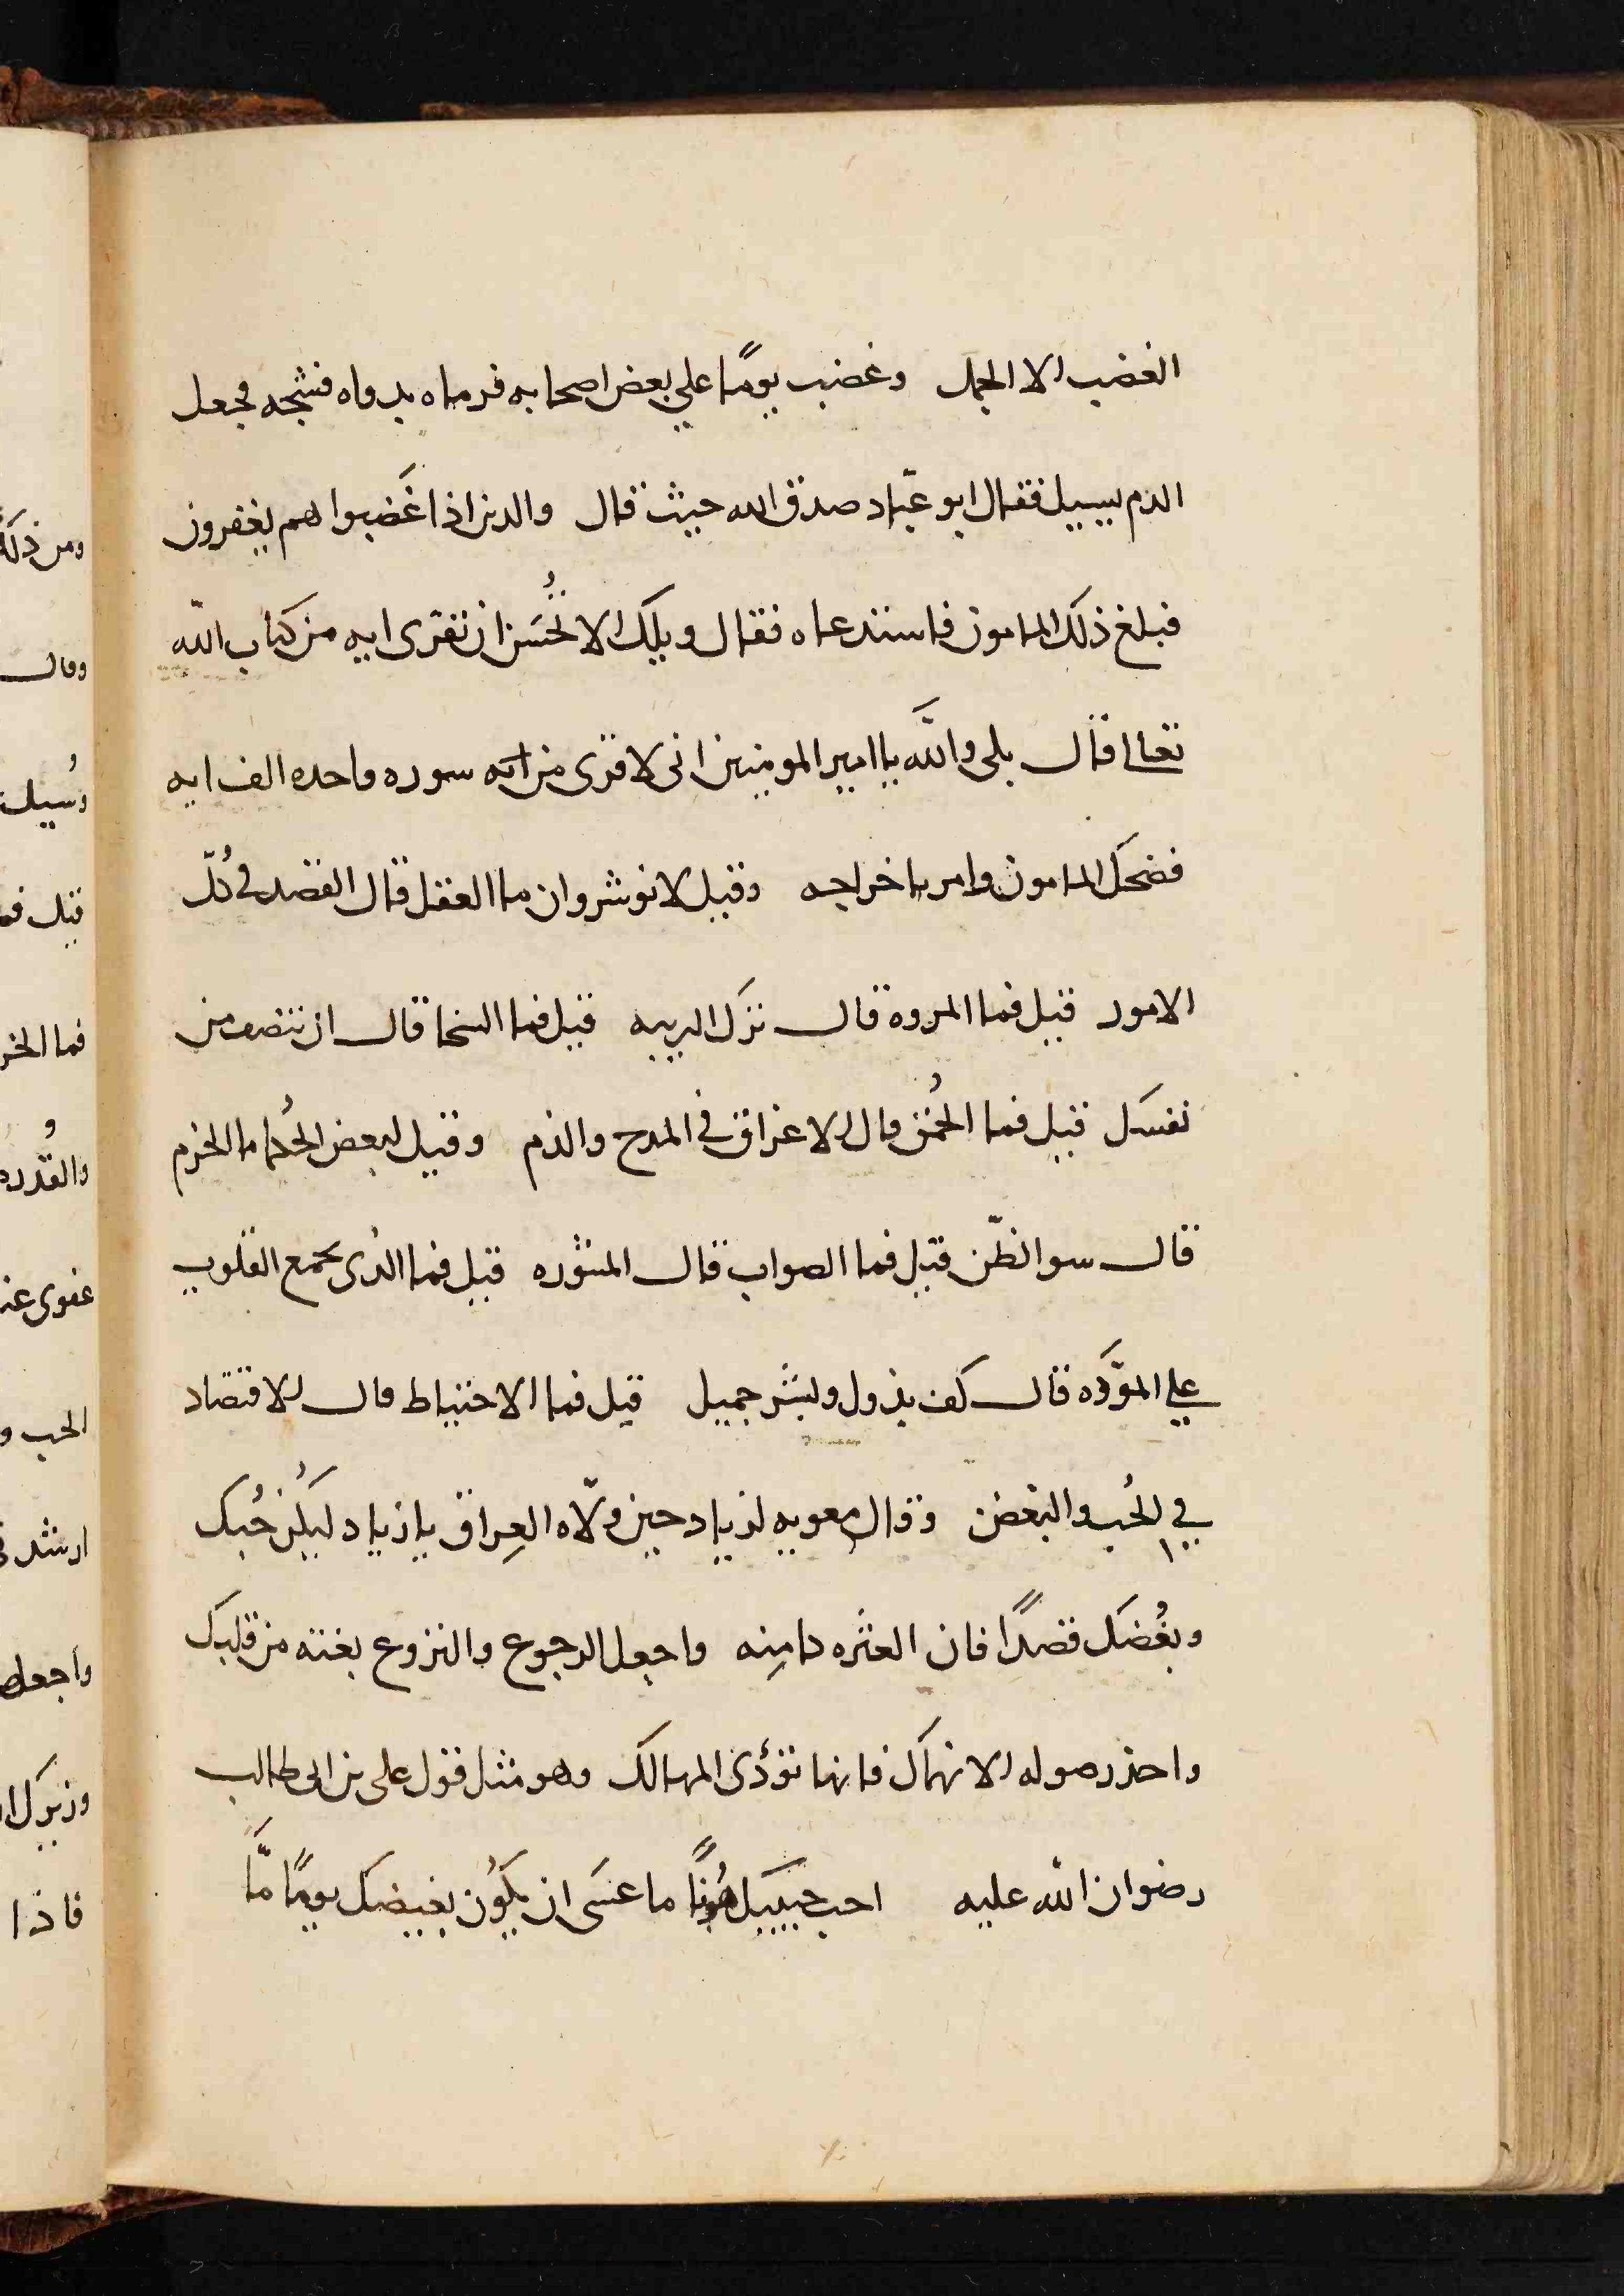 الغضب الا الجمل وغضب يومًا علي بعض اصحابه فرماه بدواه فشجه فجعل
الدم يسيل فقال ابو عبّاد صدق الله حيث قال والدين اذا غَضبوا هم يغفرون
فبلغ ذلك المامون فاستدعاه فقال ويلك الا تُحسَن ان تقرى ايه من كتاب الله
تعالى فقال بلى واللَّه يا امير المومنين انى لاقرى من سوره واحده الف ايه
فضحك المامون وامر باخراجه وقيل لانوشروان ما العقل قال القصد في كُلّ
الامور قيل فما المروه قال ترك الريبه قيل فما السخا قال ان تنصف من
نفسك قيل فما الحُمق قال الاغراق في المدح والذم وقيل لبعض الحُكما ما الحزم
قال سو الظّن قيل فما الصواب قال المشوره قيل فما الدى يجمع القلوب
علي الموَّده قال كف بذول وبشر جميل قيل فما الاحتياط قال الاقتصاد
في الحُب والبغض وقال معويه لزياد حين ولّاه العِراق يا زياد ليَكُن حُبك
وبغُضَك قصدًا فان العثره كامِنه واجعل الرجوع والنزوع بغته من قلبك
واحذر صوله الانهماك فانها تؤدى المهالك وهو مثل قول على بن ابى طالب
رضوان الله عليه احب حبيبك هُونًا ما عسَى ان يكَوُن بغيضك يومًا مَّا
ومن ذلك
وقال
وسُيل
قيل فما
والقُدره
الحب و
واجعل
فاذا